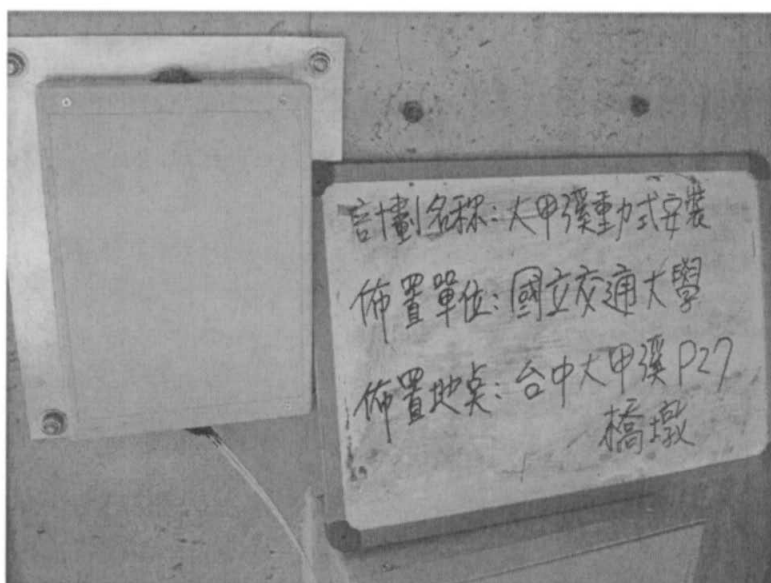 計劃名稱:大甲溪動式安裝
佈置單位:國立交通大學
佈置地點:台中大甲溪P27
橋墩